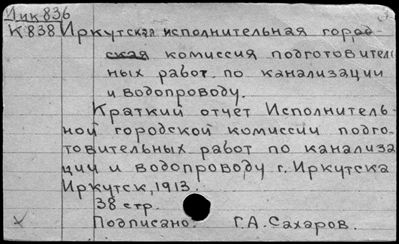 Лик 836
К 838 Иркутская исполнительная город-
ская комиссия подготовител
ных работ по канализации
и водопроводу.
Краткий отчет Исполнитель-
ной городской комиссии подго-
товительных работ по канализа
ции и водопроводу г. Иркутска
Иркутск, 1913.
38 стр.
Подписано: Г.А. Сахаров.